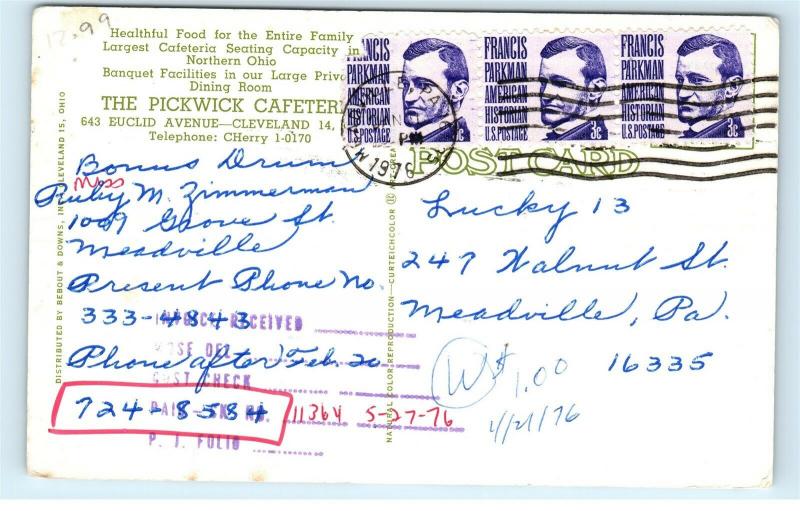 12.99
Healthful Food for the Entire Family
Largest Cafeteria Seating Capacity in
Northern Ohio
Banquet Facilities in our Large Priva
Dining Room
THE PICKWICK CAFETERI
643 EUCLID AVENUE—CLEVELAND 14,
Telephone: CHerry 1-0170
FRANCIS PARKMAN AMERICAN HISTORIAN U.S. POSTAGE 3c
FRANCIS PARKMAN AMERICAN HISTORIAN U.S. POSTAGE 3c
FRANCIS PARKMAN AMERICAN HISTORIAN U.S. POSTAGE 3c
PA
PM
1976
POST CARD
Bonus Drum
Miss
Ruby M. Zimmerman
1009 Grove St.
Meadville
Present Phone No.
333-4843
Phone after Feb. 20
724-8584
INVOICE RECEIVED
COST CHECK
P. J. FOLIO
11364 5-27-76
Lucky 13
247 Walnut St.
Meadville, Pa.
16335
W $1.00
4/21/76
DISTRIBUTED BY BEBOUT & DOWNS, INC., CLEVELAND 15, OHIO
NATURAL COLOR REPRODUCTION—CURTEICHCOLOR